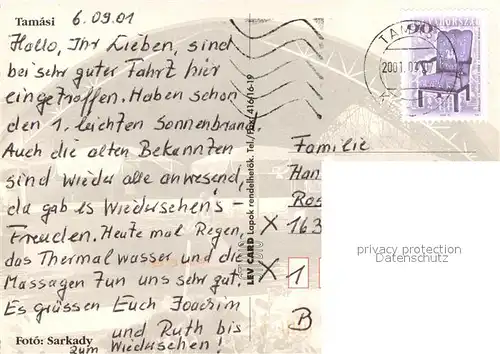 Tamási
6.09.01
Hallo, Ihr Lieben, sind
bei sehr guter Fahrt hier
eingetroffen. Haben schon
den 1. leichten Sonnenbrand.
Auch die alten Bekannten
sind wieder alle anwesend,
da gab es Wiedersehens-
Freuden. Heute mal Regen,
das Thermalwasser und die
Massagen tun uns sehr gut.
Es grüssen Euch Joachim
und Ruth bis
zum Wiedersehen!
Fotó: Sarkady
LEV CARD Lapok rendelhetők. Tel./Fax: 416/16-19
TAMÁSI
2001.
Familie
Han
Ros
X 163
X 1
B
privacy protection
Datenschutz